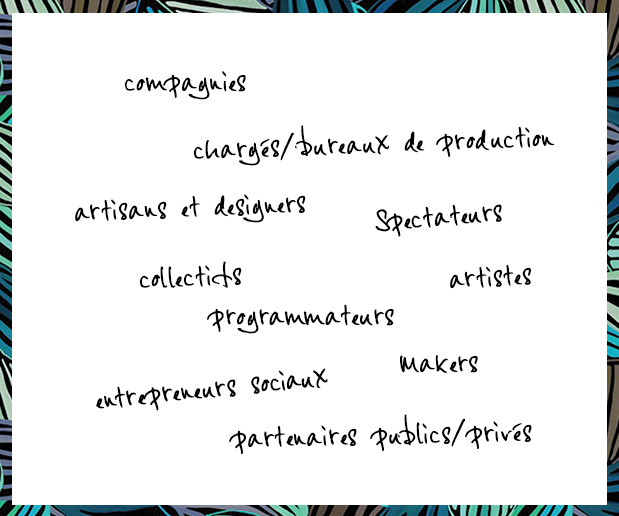 compagnies
chargés/bureaux de production
artisans et designers
Spectateurs
collectifs
artistes
programmateurs
Makers
entrepreneurs sociaux
partenaires publics/privés